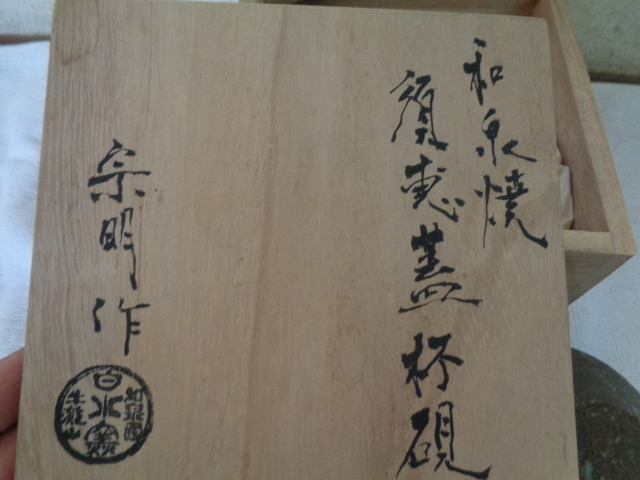 和泉焼
須恵蓋杯硯
宗明作
白水窯
和泉国